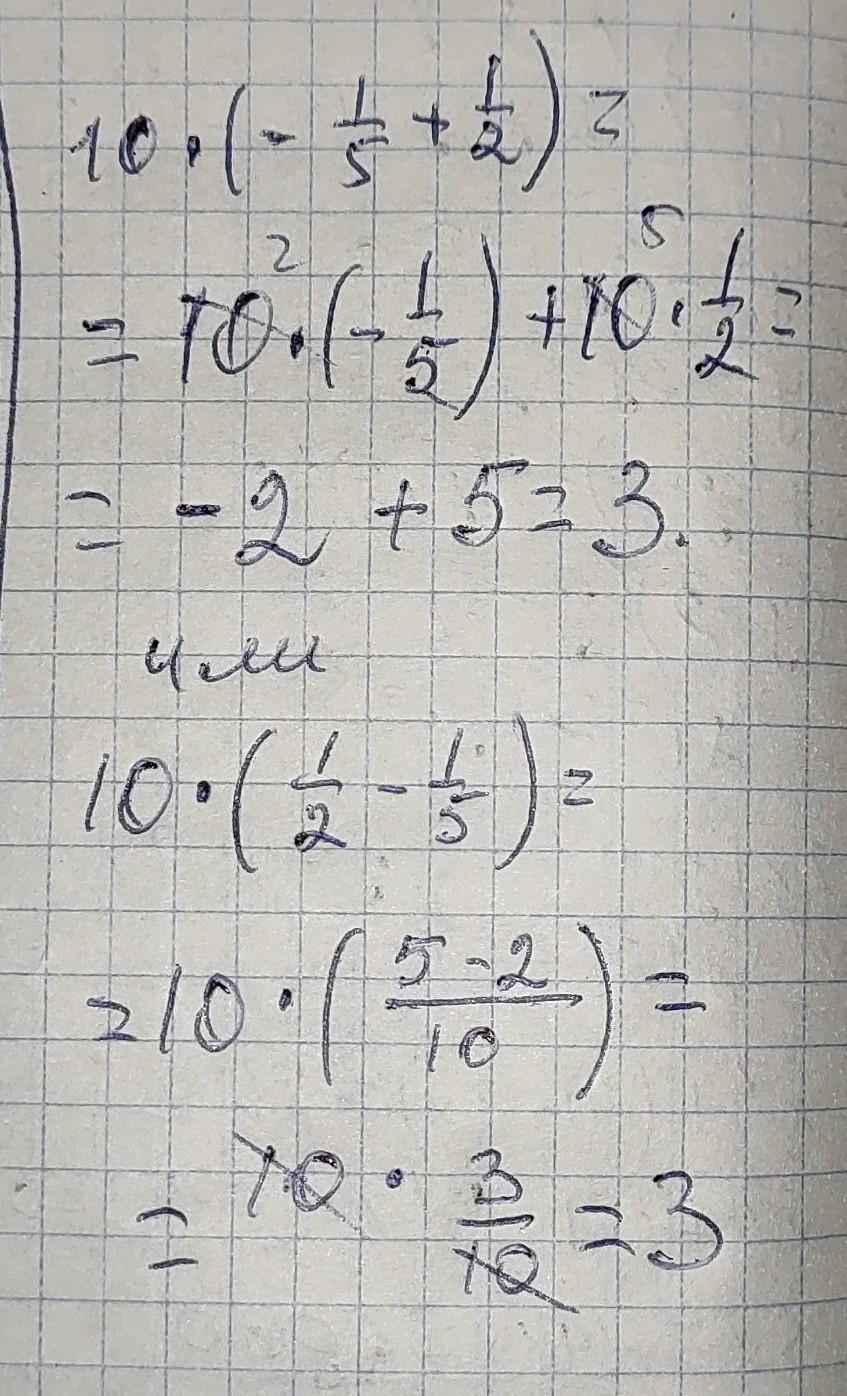 10 · (- 1/5 + 1/2) =
= 10² · (- 1/5) + 10⁵ · 1/2 =
= - 2 + 5 = 3.
или
10 · (1/2 - 1/5) =
= 10 · (5 - 2/10) =
= 10 · 3/10 = 3